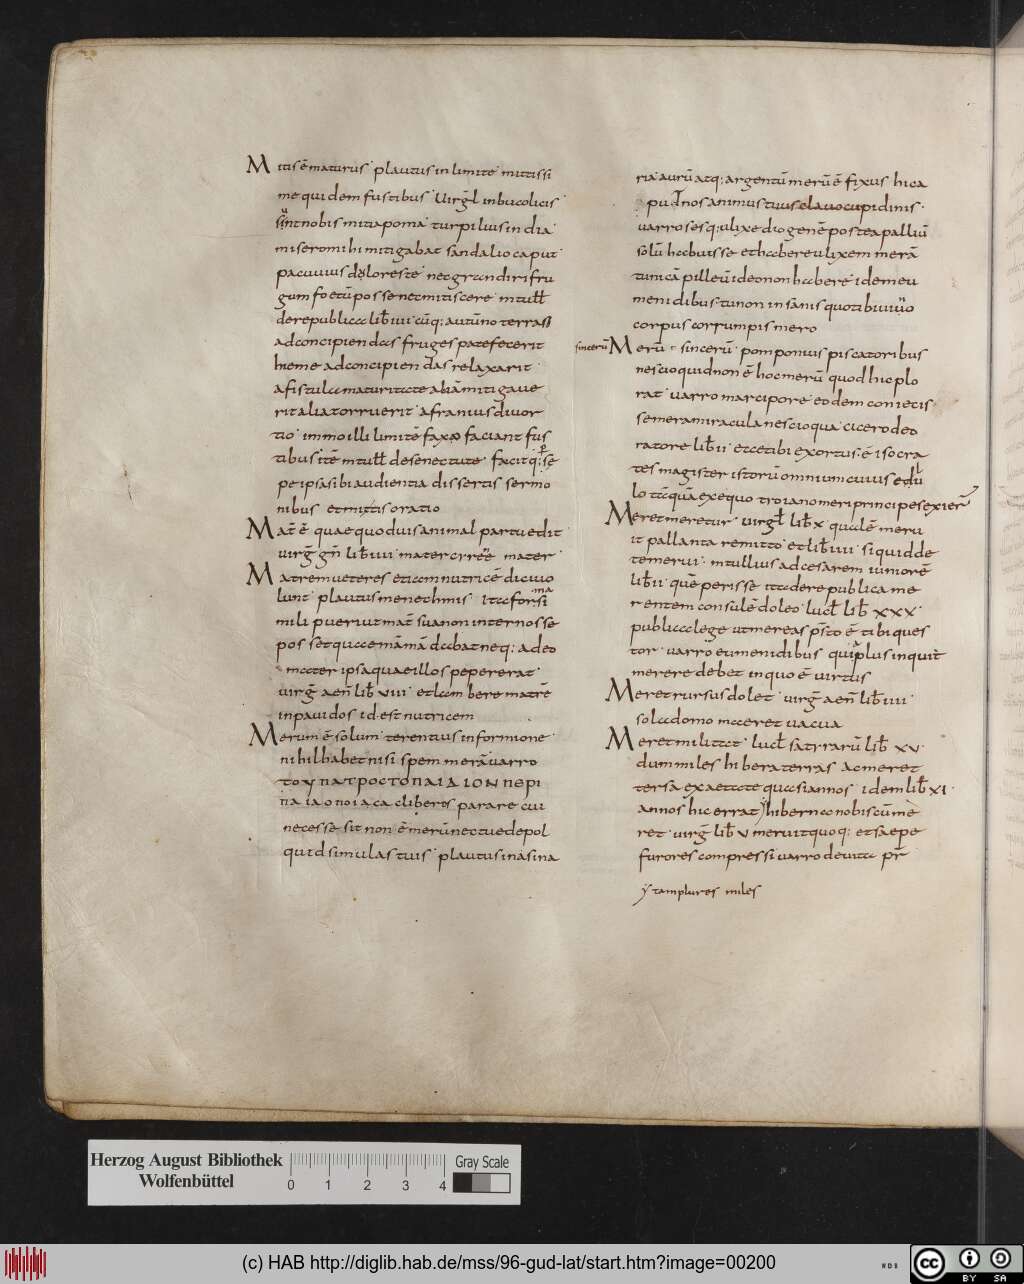 Mitis ē maturus plautus in limite mitissi
me quidem fustibus Uirgl in bucolicis
sunt nobis mitia poma turpilius in dia
misero mihi mitigabat sandalio caput
pacuuius doloreste neograndiri fru
gum foetū posse nec mitiscere m tull
de re publica lib IIII cūq; autūno terra se
ad concipiendas fruges patefecerit
hieme ad concipiendas relaxarit
afistulae maturitate aliā mitigaue
rit alia torruerit afranius diuor
tio immo illi limitē faxo faciant fus
tibus itē m tull de senectute facitq; per se
pe ipsa sibi audientia dissertis sermo
nibus et mitis oratio
Mat ē quaequoduis animal partu edit
uirg gn lib IIII mater cyrene mater
Matrem ueteres etiam nutricē dici uo
lunt plautus menechmis ita forma simi
mili pueri ut mat sua non internosse
posset quae mammā dabat neq; adeo
mater ipsa quae illos pepererat
uirg aen lib VIII et lambere matrē
inpauidos id est nutricem
Merum ē solum terentius in formione
nihil habet nisi spem merā uarro
ΤΟΥ ΠΑΤΡΟC ΤΟ ΠΑΙΔΙΟΝ ΠΕΡΙ
liberos parare cui
necesse sit non ē merū nectuedepol
quid simulas tuis plautus in asina
ria aurū atq; argentū merū ē fixus hic a
pud nos animus tuus clauo cupidinis
uarro sesq; ulixe diogenē postea palliū
solū habuisse et habere ulixem merā
tunicā pilleū ideo non habere idem eu
menidibus tu non insanis quoti bi uino
corpus corrumpis mero
sincerū
Merū sincerū pomponius piscatoribus
nescio quid non ē hoc merū quod hic plo
rat uarro marcipore eodem coniecis
se mera miracula nescio qua cicero de o
ratore lib II ecce tibi exortus ē isocra
tes magister istorū omnium cuius e du
lo tāquā ex equo troiano meri principes exier
Meret meretur uirgl lib X qualē meru
it pallanta remitto et lib IIII si quid de
te merui m tullius ad cesarem iuniorē
lib II quē perisse ita de re publica me
rentem consulē doleo lucl lib XXX
publica lege ut mereas psto ē tibi ques
tor uarro eumenidibus qui plus inquit
merere debet in quo ē uirtus
Meret rursus dolet uirg aen lib IIII
sola domo maeret uacua
Meret militat lucl satyrarū lib XV
dum miles hibera terras ac meret
ter sa ex aetate quasi annos idem lib XI
annos hic errat hibernconobiscū me
ret uirg lib V meruit quoq; et saepe
furores compressi uarro de uita pr
y tam plures miles
Herzog August Bibliothek
Wolfenbüttel
0 1 2 3 4
Gray Scale
(c) HAB http://diglib.hab.de/mss/96-gud-lat/start.htm?image=00200
WDB
CC BY SA